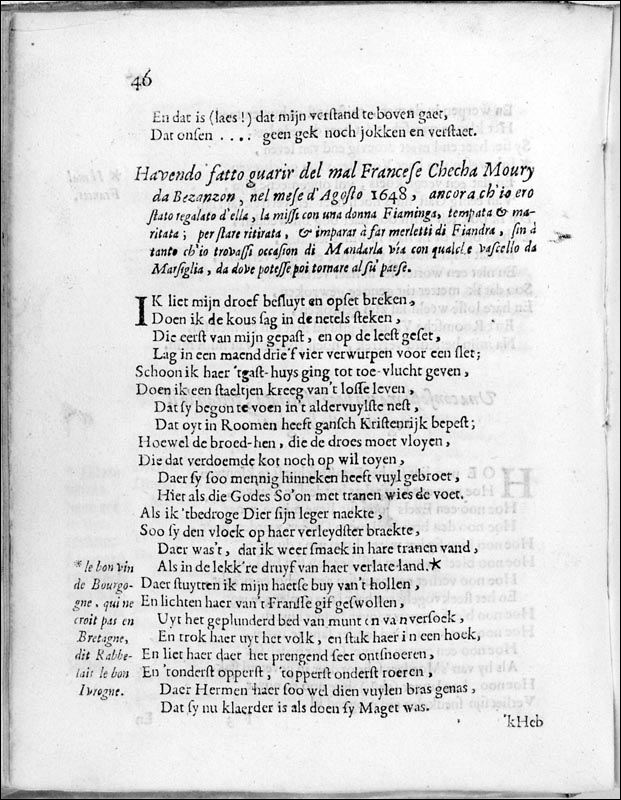 46
En dat is (laes!) dat mijn verstand te boven gaet,
Dat onsen .... geen gek noch jokken en verstaet.
Havendo fatto guarir del mal Francese Checha Moury
da Bezanzon, nel mese d'Agosto 1648, ancora ch'io ero
stato regalato d'ella, la missi con una donna Fiaminga, tempata & ma-
ritata; per stare ritirata, & imparar à far merletti di Fiandra, sin à
tanto ch'io trovassi occasion di Mandarla via con qualche vascello da
Marsiglia, da dove potesse poi tornare al su' paese.
IK liet mijn droef besluyt en opset breken,
Doen ik de kous sag in de netels steken,
Die eerst van mijn gepast, en op de leest geset,
Lag in een maend drie'f vier verwurpen voor een slet;
Schoon ik haer 'tgast-huys ging tot toe-vlucht geven,
Doen ik een staeltjen kreeg van't losse leven,
Dat sy begon te voen in't aldervuylste nest,
Dat oyt in Roomen heeft gansch Kristenrijk bepest;
Hoewel de broed-hen, die de droes moet vloyen,
Die dat verdoemde kot noch op wil toyen,
Daer sy soo mennig hinneken heeft vuyl gebroet,
Hier als die Godes So'on met tranen wies de voet.
Als ik 'tbedroge Dier sijn leger naekte,
Soo sy den vloek op haer verleydster braekte,
Daer was't, dat ik weer smaek in hare tranen vand,
Als in de lekk're druyf van haer verlate land.*
* le bon vin
de Bourgo-
gne, qui ne
croit pas en
Bretagne,
dit Rabbe-
lais le bon
Ivrogne.
Daer stuytten ik mijn haetse buy van't hollen,
En lichten haer van't Franse gif geswollen,
Uyt het geplunderd bed van munt en van versoek,
En trok haer uyt het volk, en stak haer in een hoek,
En liet haer daer het prengend seer ontsnoeren,
En 'tonderst opperst, 'topperst onderst roeren,
Daer Hermen haer soo wel dien vuylen bras genas,
Dat sy nu klaerder is als doen sy Maget was.
'kHeb